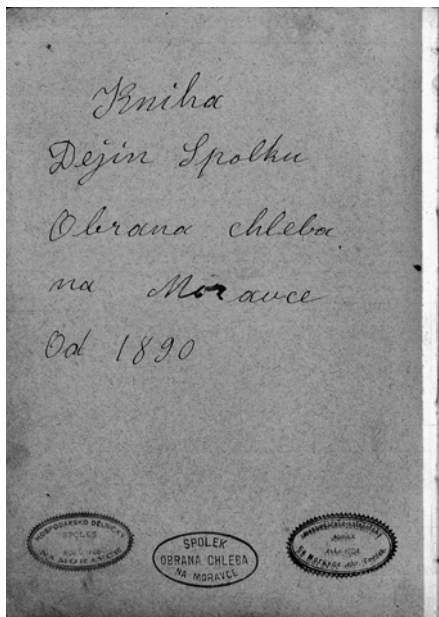 Kniha
Dějin Spolku
Obrana chleba
na Moravce
Od 1890
HOSPODÁRSKO DĚLNICKÝ
SPOLEK
NA MORAVCE
SPOLEK
OBRANA CHLEBA
NA MORAVCE